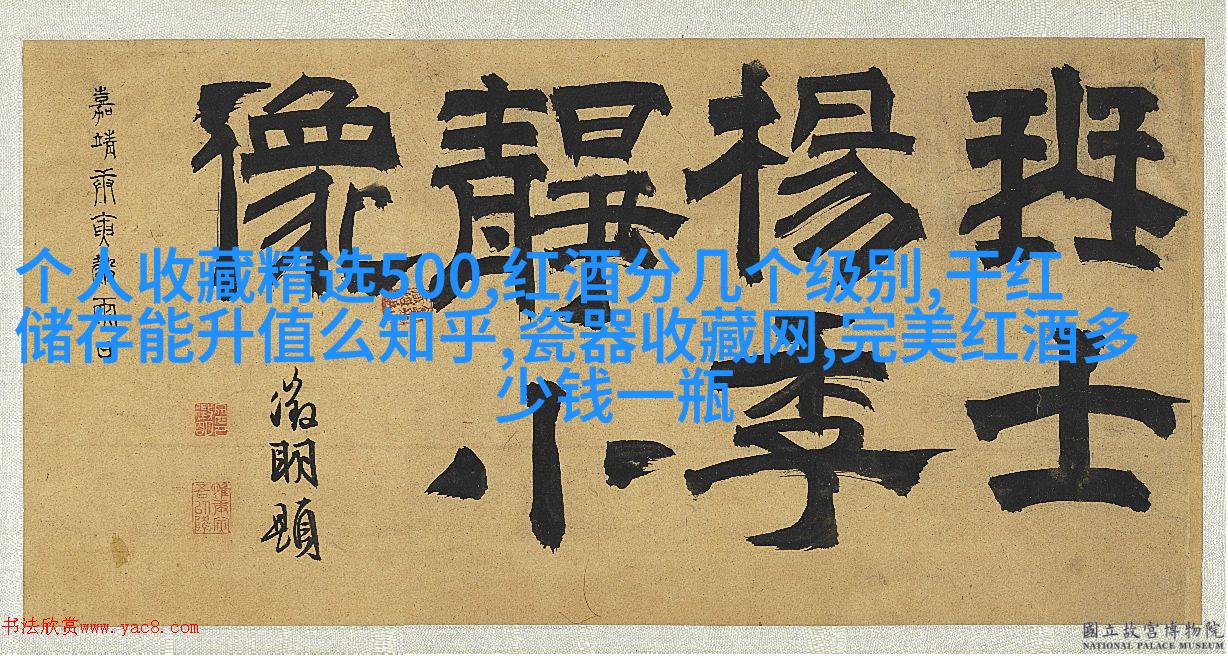 琴士
楊季
靜小
像
嘉靖庚寅
徵明題
个人收藏精选500,红酒分几个级别,干红
储存能升值么知乎,瓷器收藏网,完美红酒多
少钱一瓶
书法欣赏www.yac8.com
國立故宮博物院
NATIONAL PALACE MUSEUM